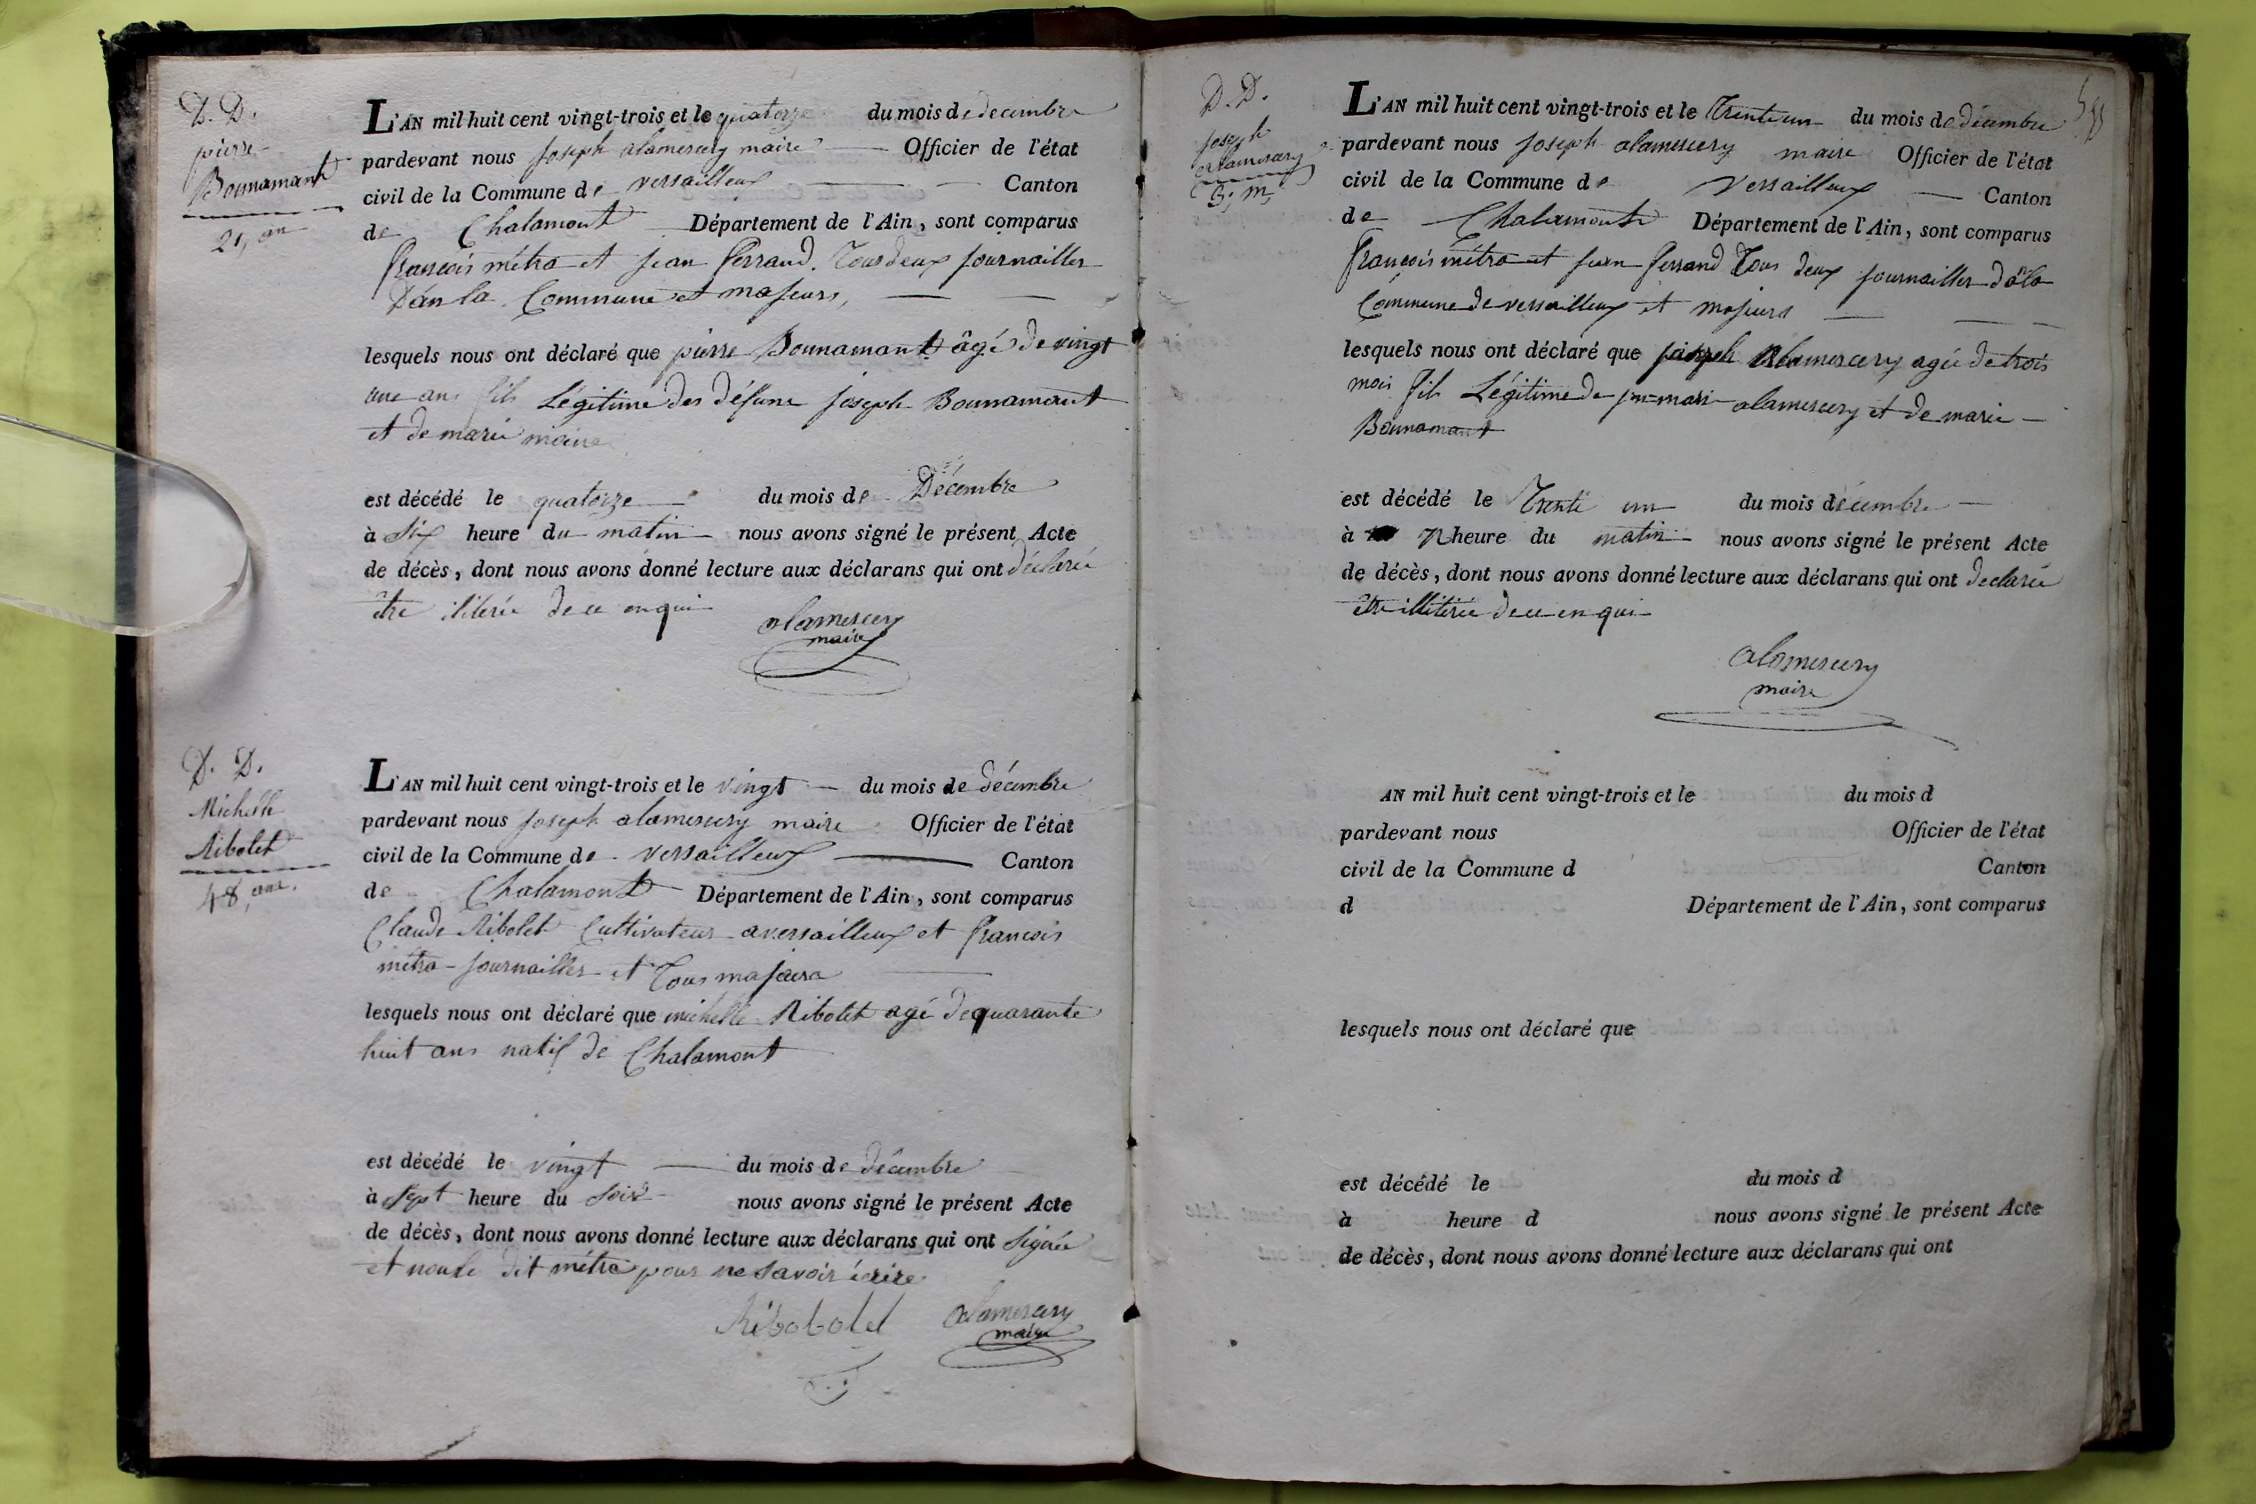 D. D.
pierre
Bounamant
21, an
L'AN mil huit cent vingt-trois et le quatorze du mois de decembre
pardevant nous joseph alamercery maire Officier de l'état
civil de la Commune de versailleux Canton
de Chalamont Département de l'Ain, sont comparus
francois métra et jean ferrand. Tous deux journailler
Dan la Commune et majeurs,
lesquels nous ont déclaré que pierre Bounamant âgé de vingt
une ans fils Légitime des défunt joseph Bounamant
et de marie moine
est décédé le quatorze du mois de Décembre
à six heure du matin nous avons signé le présent Acte
de décès, dont nous avons donné lecture aux déclarans qui ont déclarée
être iliterée de ce enqui
alamercery
maire
D. D.
Michelle
Ribolet
48, ans.
L'AN mil huit cent vingt-trois et le vingt du mois de décembre
pardevant nous joseph alamercery maire Officier de l'état
civil de la Commune de versailleux Canton
de Chalamont Département de l'Ain, sont comparus
Claude Ribolet Cultivateur a versailleux et francois
métra journailler et Tous majeurs
lesquels nous ont déclaré que michelle Ribolet agé de quarante
huit ans natif de Chalamont
est décédé le vingt du mois de décembre
à sept heure du soir nous avons signé le présent Acte
de décès, dont nous avons donné lecture aux déclarans qui ont signée
et non le dit métra pour ne savoir écrire
Ribobolet alamercery
maire
D. D.
joseph
alamercery
3, m,
L'AN mil huit cent vingt-trois et le Trente un du mois de décembre
pardevant nous joseph alamercery maire Officier de l'état
civil de la Commune de versailleux Canton
de Chalamont Département de l'Ain, sont comparus
françois métra et jean ferrand Tous deux journailler dela
Commune de versailleux et majeurs
lesquels nous ont déclaré que joseph alamercery agée de trois
mois fils Légitime de alamercery et de marie
Bounamant
est décédé le Trente un du mois décembre
à 7 heure du matin nous avons signé le présent Acte
de décès, dont nous avons donné lecture aux déclarans qui ont declarée
être illiterée de ce enqui
alamercery
maire
AN mil huit cent vingt-trois et le du mois d
pardevant nous Officier de l'état
civil de la Commune d Canton
d Département de l'Ain, sont comparus
lesquels nous ont déclaré que
est décédé le du mois d
à heure d nous avons signé le présent Acte
de décès, dont nous avons donné lecture aux déclarans qui ont